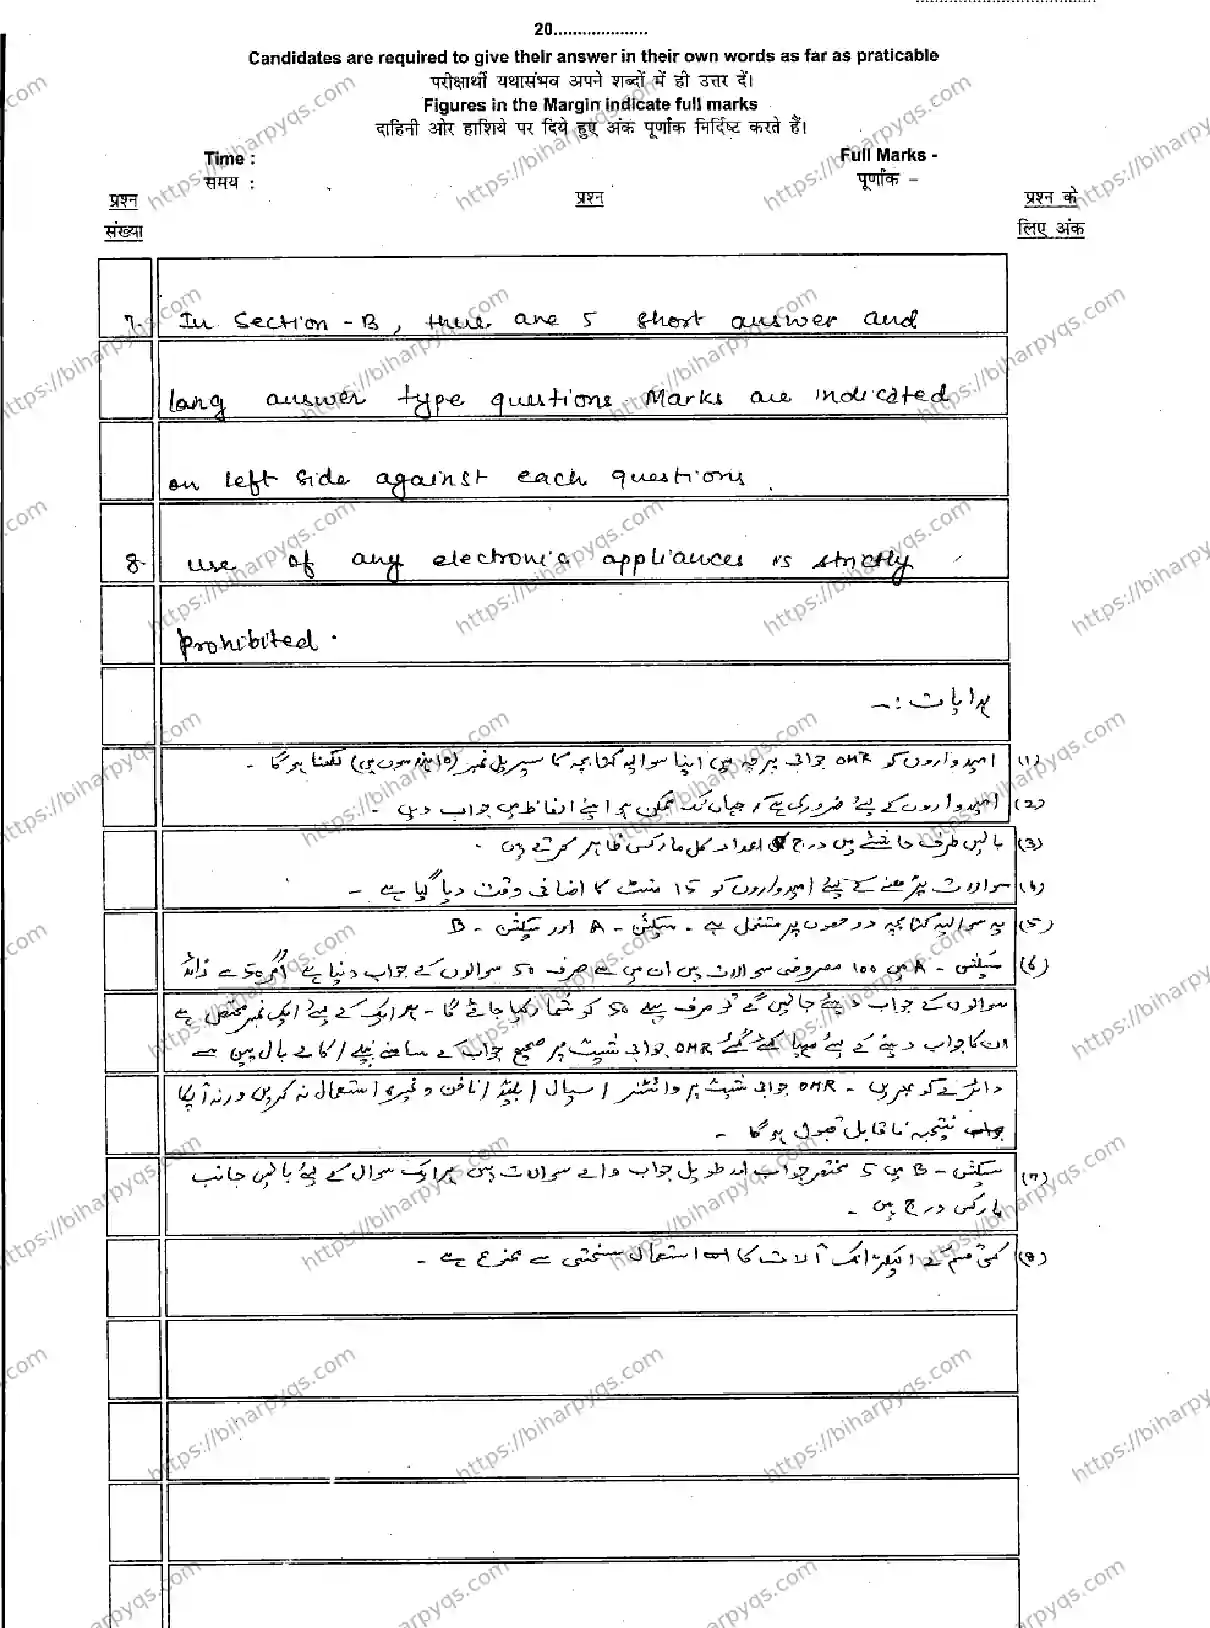 20....................
Candidates are required to give their answer in their own words as far as praticable
परीक्षार्थी यथासंभव अपने शब्दों में ही उत्तर दें।
Figures in the Margin indicate full marks
दाहिनी ओर हाशिये पर दिये हुए अंक पूर्णांक निर्दिष्ट करते हैं।
Time :
Full Marks -
समय :
पूर्णांक –
प्रश्न
संख्या
प्रश्न
प्रश्न के
लिए अंक
7. In Section - B, there are 5 short answer and
long answer type questions. Marks are indicated
on left side against each questions.
8. use of any electronic appliances is strictly
prohibited.
ہدایات :-
(1) امیدواروں کو OMR جوابی پرچہ میں اپنا سوالیہ کتابچہ کا سیریل نمبر (10 ہندسوں میں) لکھنا ہوگا -
(2) امیدواروں کے لیے ضروری ہے کہ جہاں تک ممکن ہو اپنے الفاظ میں جواب دیں -
(3) بائیں طرف حاشئے میں درج اعداد کل مارکس ظاہر کرتے ہیں -
(4) سوالات پڑھنے کے لیے امیدواروں کو 15 منٹ کا اضافی وقت دیا گیا ہے -
(5) یہ سوالیہ کتابچہ دو حصوں پر مشتمل ہے - سیکشن - A اور سیکشن - B
(6) سیکشن - A میں 100 معروضی سوالات ہیں ان میں سے صرف 50 سوالوں کے جواب دینا ہے اگر 50 سے زائد
سوالوں کے جواب دیئے جائیں گے تو صرف پہلے 50 کو شمار کیا جائے گا - ہر ایک کے لیے ایک نمبر مختص ہے
ان کا جواب دینے کے لیے مہیا کئے گئے OMR جوابی شیٹ پر صحیح جواب کے سامنے نیلے / کالے بال پین سے
دائرے کو بھریں - OMR جوابی شیٹ پر وائٹنر / سیال / بلیڈ / ناخن وغیرہ استعمال نہ کریں ورنہ آپکا
نتیجہ ناقابل قبول ہوگا -
(7) سیکشن - B میں 5 مختصر جواب اور طویل جواب والے سوالات ہیں ہر ایک سوال کے لیے بائیں جانب
مارکس درج ہیں -
(8) کسی قسم کے الیکٹرانک آلات کا استعمال سختی سے ممنوع ہے -
https://biharpyqs.com